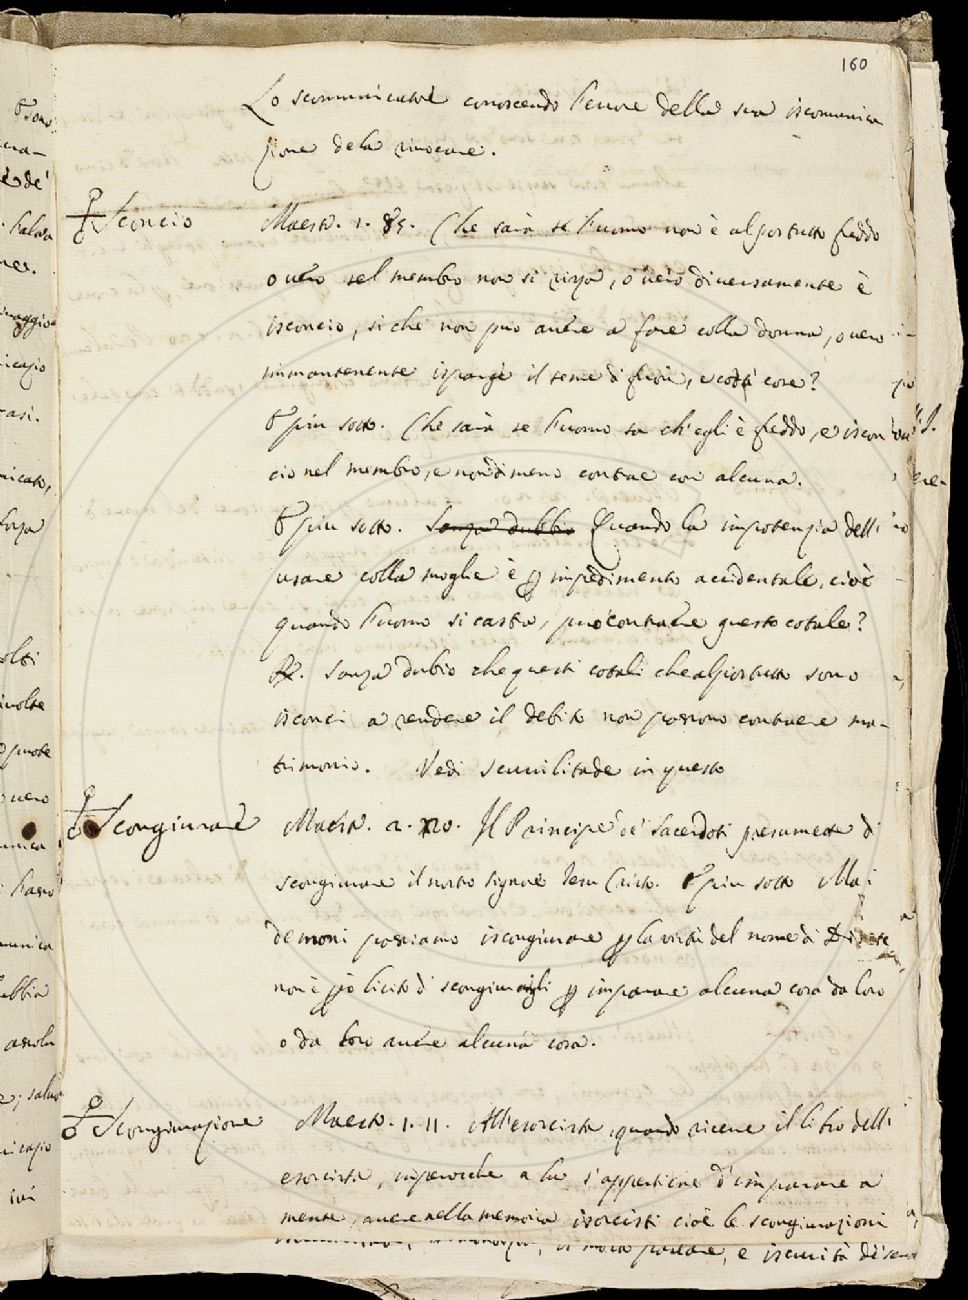 160
Lo scomunicatore conoscendo l'errore della sua iscomunica
zione dela rivocare.
Sconcio Maestr. 1. 85. Che sarà se l'uomo non è al postutto freddo
o vero nel membro non si rizza, o vero diversamente è
isconcio, si che non può avere a fare colla donna, o vero
immantenente isparge il seme di fuori, e cotali cose?
E più sotto. Che sarà se l'uomo sa ch'egli è freddo, e iscon
cio nel membro, e nondimeno contrae con alcuna.
E più sotto. Senza dubbio Quando la impotenzia dell'
usare colla moglie è p impedimento accidentale, cioè
quando l'uomo si castra, può contraere questo cotale?
R. Senza dubio che questi cotali che al postutto sono
isconci a rendere il debito non possono contraere ma-
trimonio. Vedi Scurilitade in questo
Scongiurare Maestr. 2. Il Principe de' Sacerdoti presumette di
scongiurare il nostro Signore Iesu Cristo. E più sotto Ma i
demoni possiamo iscongiurare p la virtù del nome di
non è pò licito di scongiurargli p imparare alcuna cosa da loro
o da loro avere alcuna cosa.
Scongiurazione Maestr. 1. 11. All'esorcista, quando riceve il libro delli
esorcisti, imperocchè a lui s'appartiene d'imparare a
mente, avere nella memoria isorcisti cioè le scongiurazioni